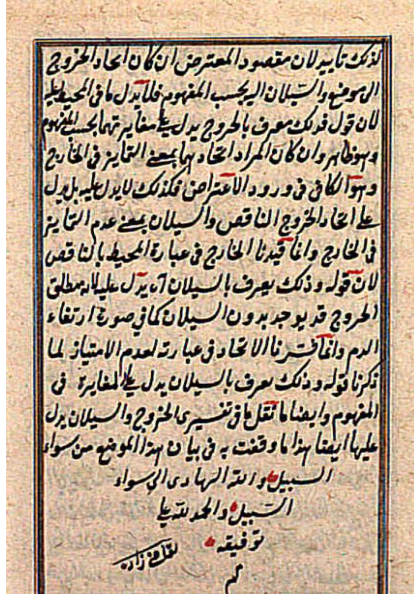 لذلك تأييد لان مقصود المعترض ان كان اتحاد الخروج
الى موضع والسيلان اليه بحسب المفهوم فلا يدل ما فى المحيط عليه
لان قول وذلك يعرف بالخروج يدل على مغايرتهما بحسب المفهوم
وهو ظاهر وان كان المراد اتحادهما بمعنى التمايز فى الخارج
وهو الكافى فى ورود الاعتراض فكذلك لا يدل عليه بل يدل
على اتحاد الخروج الناقص والسيلان بمعنى عدم التمايز
فى الخارج وانما قيدنا الخارج فى عبارة المحيط بالناقص
لان قوله وذلك يعرف بالسيلان اه يدل عليه لان مطلق
الخروج قد يوجد بدون السيلان كما فى صورة ارتقاء
الدم وانما فسرنا الاتحاد فى عبارته لعدم الامتياز لما
ذكرنا قوله وذلك يعرف بالسيلان يدل على المغايرة فى
المفهوم وايضا ما نقل ما فى تفسيرى الخروج والسيلان يدل
عليها ايضا هذا ما وقفت به فى بيان هذا الموضع من سواء
السبيل والله الهادى الى سواء
السبيل والحمد لله على
توفيقه
زاده
تم